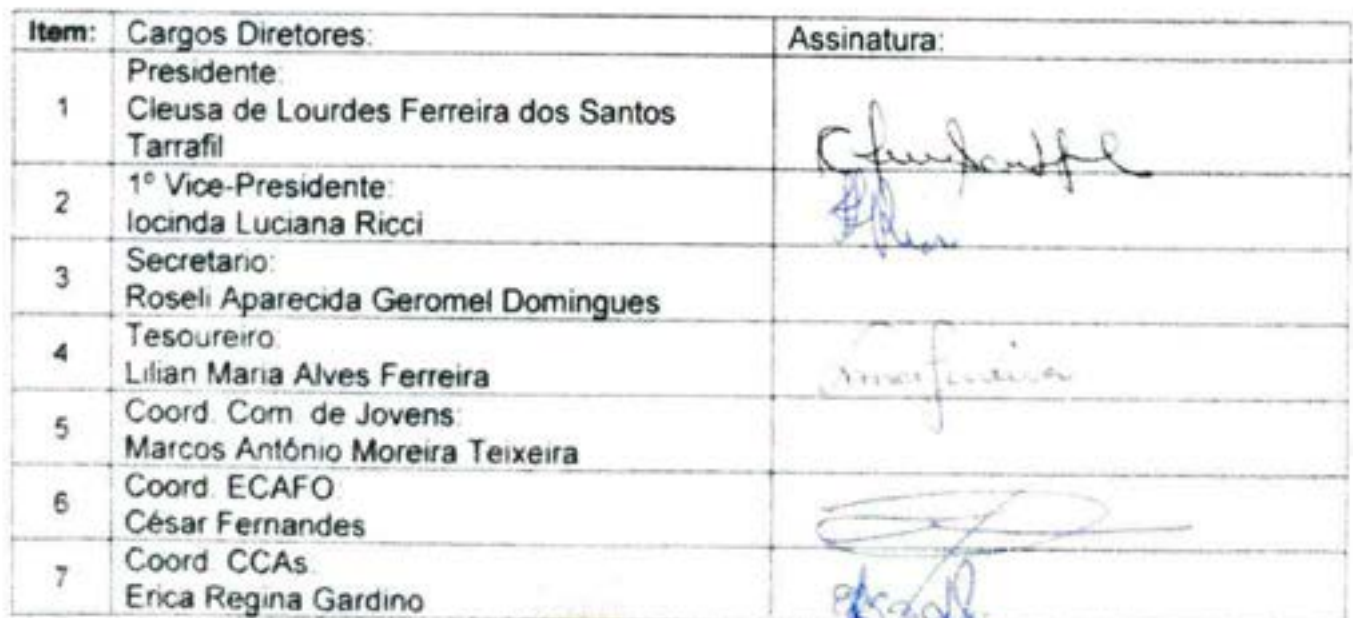 Item: Cargos Diretores: Assinatura:
Presidente:
1 Cleusa de Lourdes Ferreira dos Santos
Tarrafil
1º Vice-Presidente:
2
Iocinda Luciana Ricci
Secretario:
3
Roseli Aparecida Geromel Domingues
Tesoureiro:
4
Lilian Maria Alves Ferreira
Coord. Com. de Jovens:
5
Marcos Antônio Moreira Teixeira
Coord. ECAFO
6
César Fernandes
Coord. CCAs.
7
Erica Regina Gardino